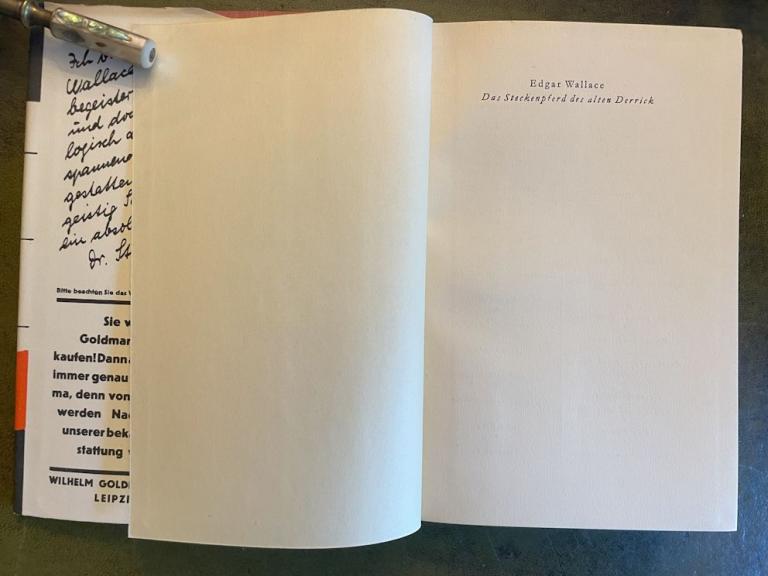 Ich b
Wallace
begeister
und do
logisch a
spannend
gestalte
geistig
ein absol
Dr. St
Bitte beachten Sie das
Sie w
Goldmar
kaufen! Dann
immer genau
ma, denn von
werden Na
unserer bek
stattung
WILHELM GOLD
LEIPZI
Edgar Wallace
Das Steckenpferd des alten Derrick